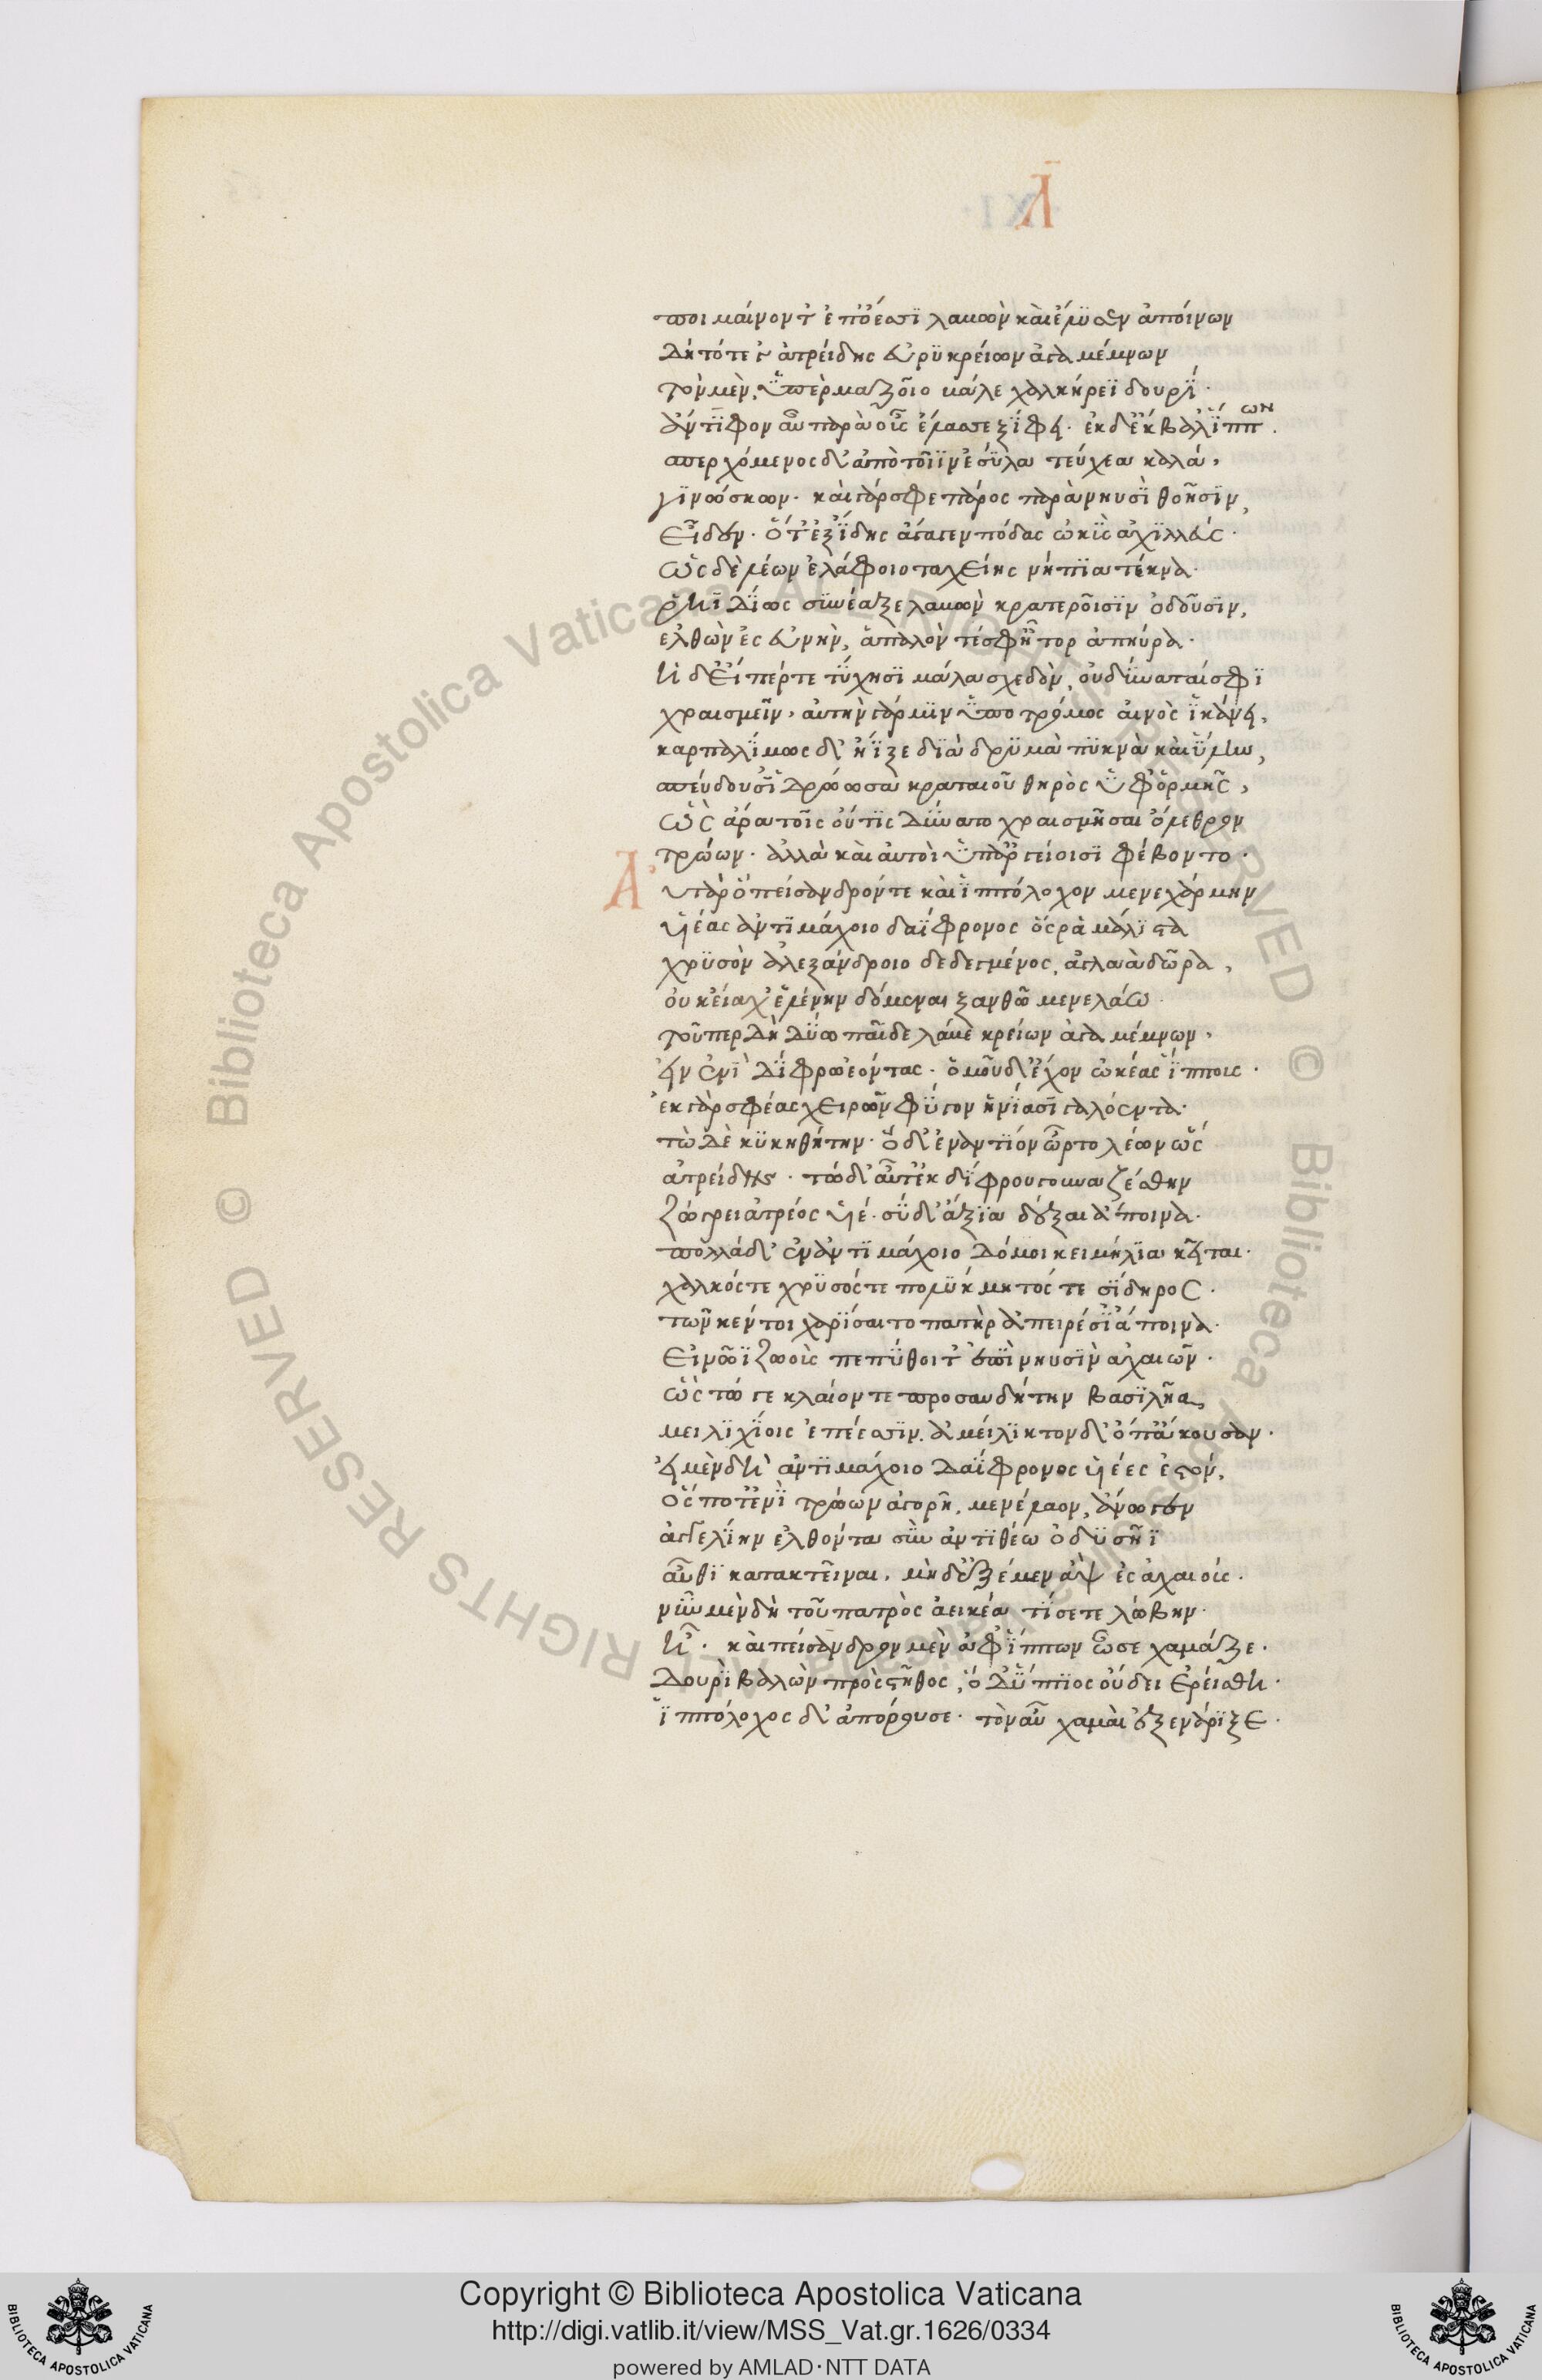 Λ̄
ποιμαίνοντ' ἐπ' ὀέσσϊ λαβὼν καὶ ἔλϋσεν ἀποίνων
Δὴ τότε γ' ἀτρείδης εὐρϋκρείων ἀγαμέμνων
τὸν μὲν, ὑπὲρ μαζοῖο βάλε χαλκήρεϊ δουρΐ·
ἄντϊφον αὖ παρὰ οὖς ἔλασσε ξΐφει· ἐκ δ' ἔκβαλ' ἵππων.
σπερχόμενος δ' ἀπὸ τοῖϊν ἐσύλα τεύχεα καλά,
γϊνώσκων· καὶ γάρ σφε πάρος παρὰ νηυσὶ θοῇσϊν,
Εἶδεν· ὅτ' ἐξ ἴδης ἄγαγεν πόδας ὠκὺς ἀχϊλλεύς·
Ὡς δὲ λέων ἐλάφοιο ταχείης νήπϊα τέκνα·
ῥηϊδΐως συνέαξε λαβὼν κρατεροῖσϊν ὀδοῦσϊν,
ελθὼν ἐς εὐνὴν, ἁπαλόν τέ σφ' ἦτορ ἀπηύρα·
ἡ δ' εἴπερ τε τύχησϊ μάλα σχεδὸν, οὐ δύναταί σφϊ
χραισμεῖν, αὐτὴν γάρ μϊν ὑπο τρόμος αἰνὸς ἱκάνει,
καρπαλΐμως δ' ἤϊξε δϊὰ δρϋμὰ πϋκνὰ καὶ ὕλην,
σπεύδουσ' ἱδρώωσα κραταιοῦ θηρὸς ὑφ' ὁρμῆς,
Ὣς ἄρα τοῖς οὔτϊς δύνατο χραισμῆσαι ὄλεθρον
τρώων· ἀλλὰ καὶ αὐτοὶ ὑπ' ἀργείοισϊ φέβοντο·
Ἀυτὰρ ὁ πείσανδρόν τε καὶ ἱππόλοχον μενεχάρμην
υἱέας ἀντϊμάχοιο δαΐφρονος ὅς ρα μάλϊστα
χρϋσὸν ἀλεξάνδροιο δεδεγμένος, ἀγλαὰ δῶρα,
οὐκ εἴασχ' ἑλένην δόμεναι ξανθῶ μενελάω·
τοῦ περ δὴ δύω παῖδε λάβε κρείων ἀγαμέμνων,
εἰν ἑνὶ δΐφρω ἐόντας· ὁμοῦ δ' ἔχον ὠκέας ἵππους·
ἐκ γάρ σφέας χειρῶν φύγον ἡνΐα σϊγαλόεντα·
τὼ δὲ κϋκηθήτην· ὁ δ' ἐναντΐον ὦρτο λέων ὣς
ἀτρείδης· τὼ δ' αὖτ' ἐκ δΐφρου γουναζέσθην
ζώγρει ἀτρέος υἱέ· σὺ δ' ἄξϊα δέξαι ἄποινα·
πολλὰ δ' ἐν ἀντϊμάχοιο δόμοις κειμήλϊα κεῖται·
χαλκός τε χρϋσός τε πολϋκμητός τε σΐδηρος·
τῶν κέν τοι χαρΐσαιτο πατὴρ ἀπειρέσϊ' ἄποινα·
Εἰ νῶϊ ζωοὺς πεπύθοιτ' ἐπὶ νηυσϊν ἀχαιῶν·
ὣς τώ γε κλαίοντε προσαυδήτην βασϊλῆα,
μειλϊχΐοις ἐπέεσσϊν. ἀμείλϊκτον δ' ὄπ' ἄκουσαν·
εἰ μὲν δὴ ἀντϊμάχοιο δαΐφρονος υἱέες ἐστόν,
ὅς ποτ' ἐνὶ τρώων ἀγορῆ, μενέλαον, ἄνωγεν
ἀγγελΐην ελθόντα σὺν ἀντϊθέω ὀδϋσῆϊ
αὖθϊ κατακτεῖναι, μὴ δ' ἐξέμεν ἂψ ἐς ἀχαιούς.
νῦν μὲν δὴ τοῦ πατρὸς ἀεικέα τΐσετε λώβην·
ἦ· καὶ πείσανδρον μὲν ἀφ' ἵππων ὦσε χαμᾶζε·
Δουρὶ βαλὼν πρὸς στῆθος, ὁ δ' ὕπτϊος οὔδει ἐρείσθη·
ἱππόλοχος δ' ἀπόρουσε· τὸν αὖ χαμαὶ ἐξενάρϊξε·
© Biblioteca Apostolica Vaticana ALL RIGHTS RESERVED © Biblioteca Apostolica Vaticana ALL RIGHTS RESERVED
BIBLIOTECA APOSTOLICA VATICANA
Copyright © Biblioteca Apostolica Vaticana
http://digi.vatlib.it/view/MSS_Vat.gr.1626/0334
powered by AMLAD·NTT DATA
BIBLIOTECA APOSTOLICA VATICANA